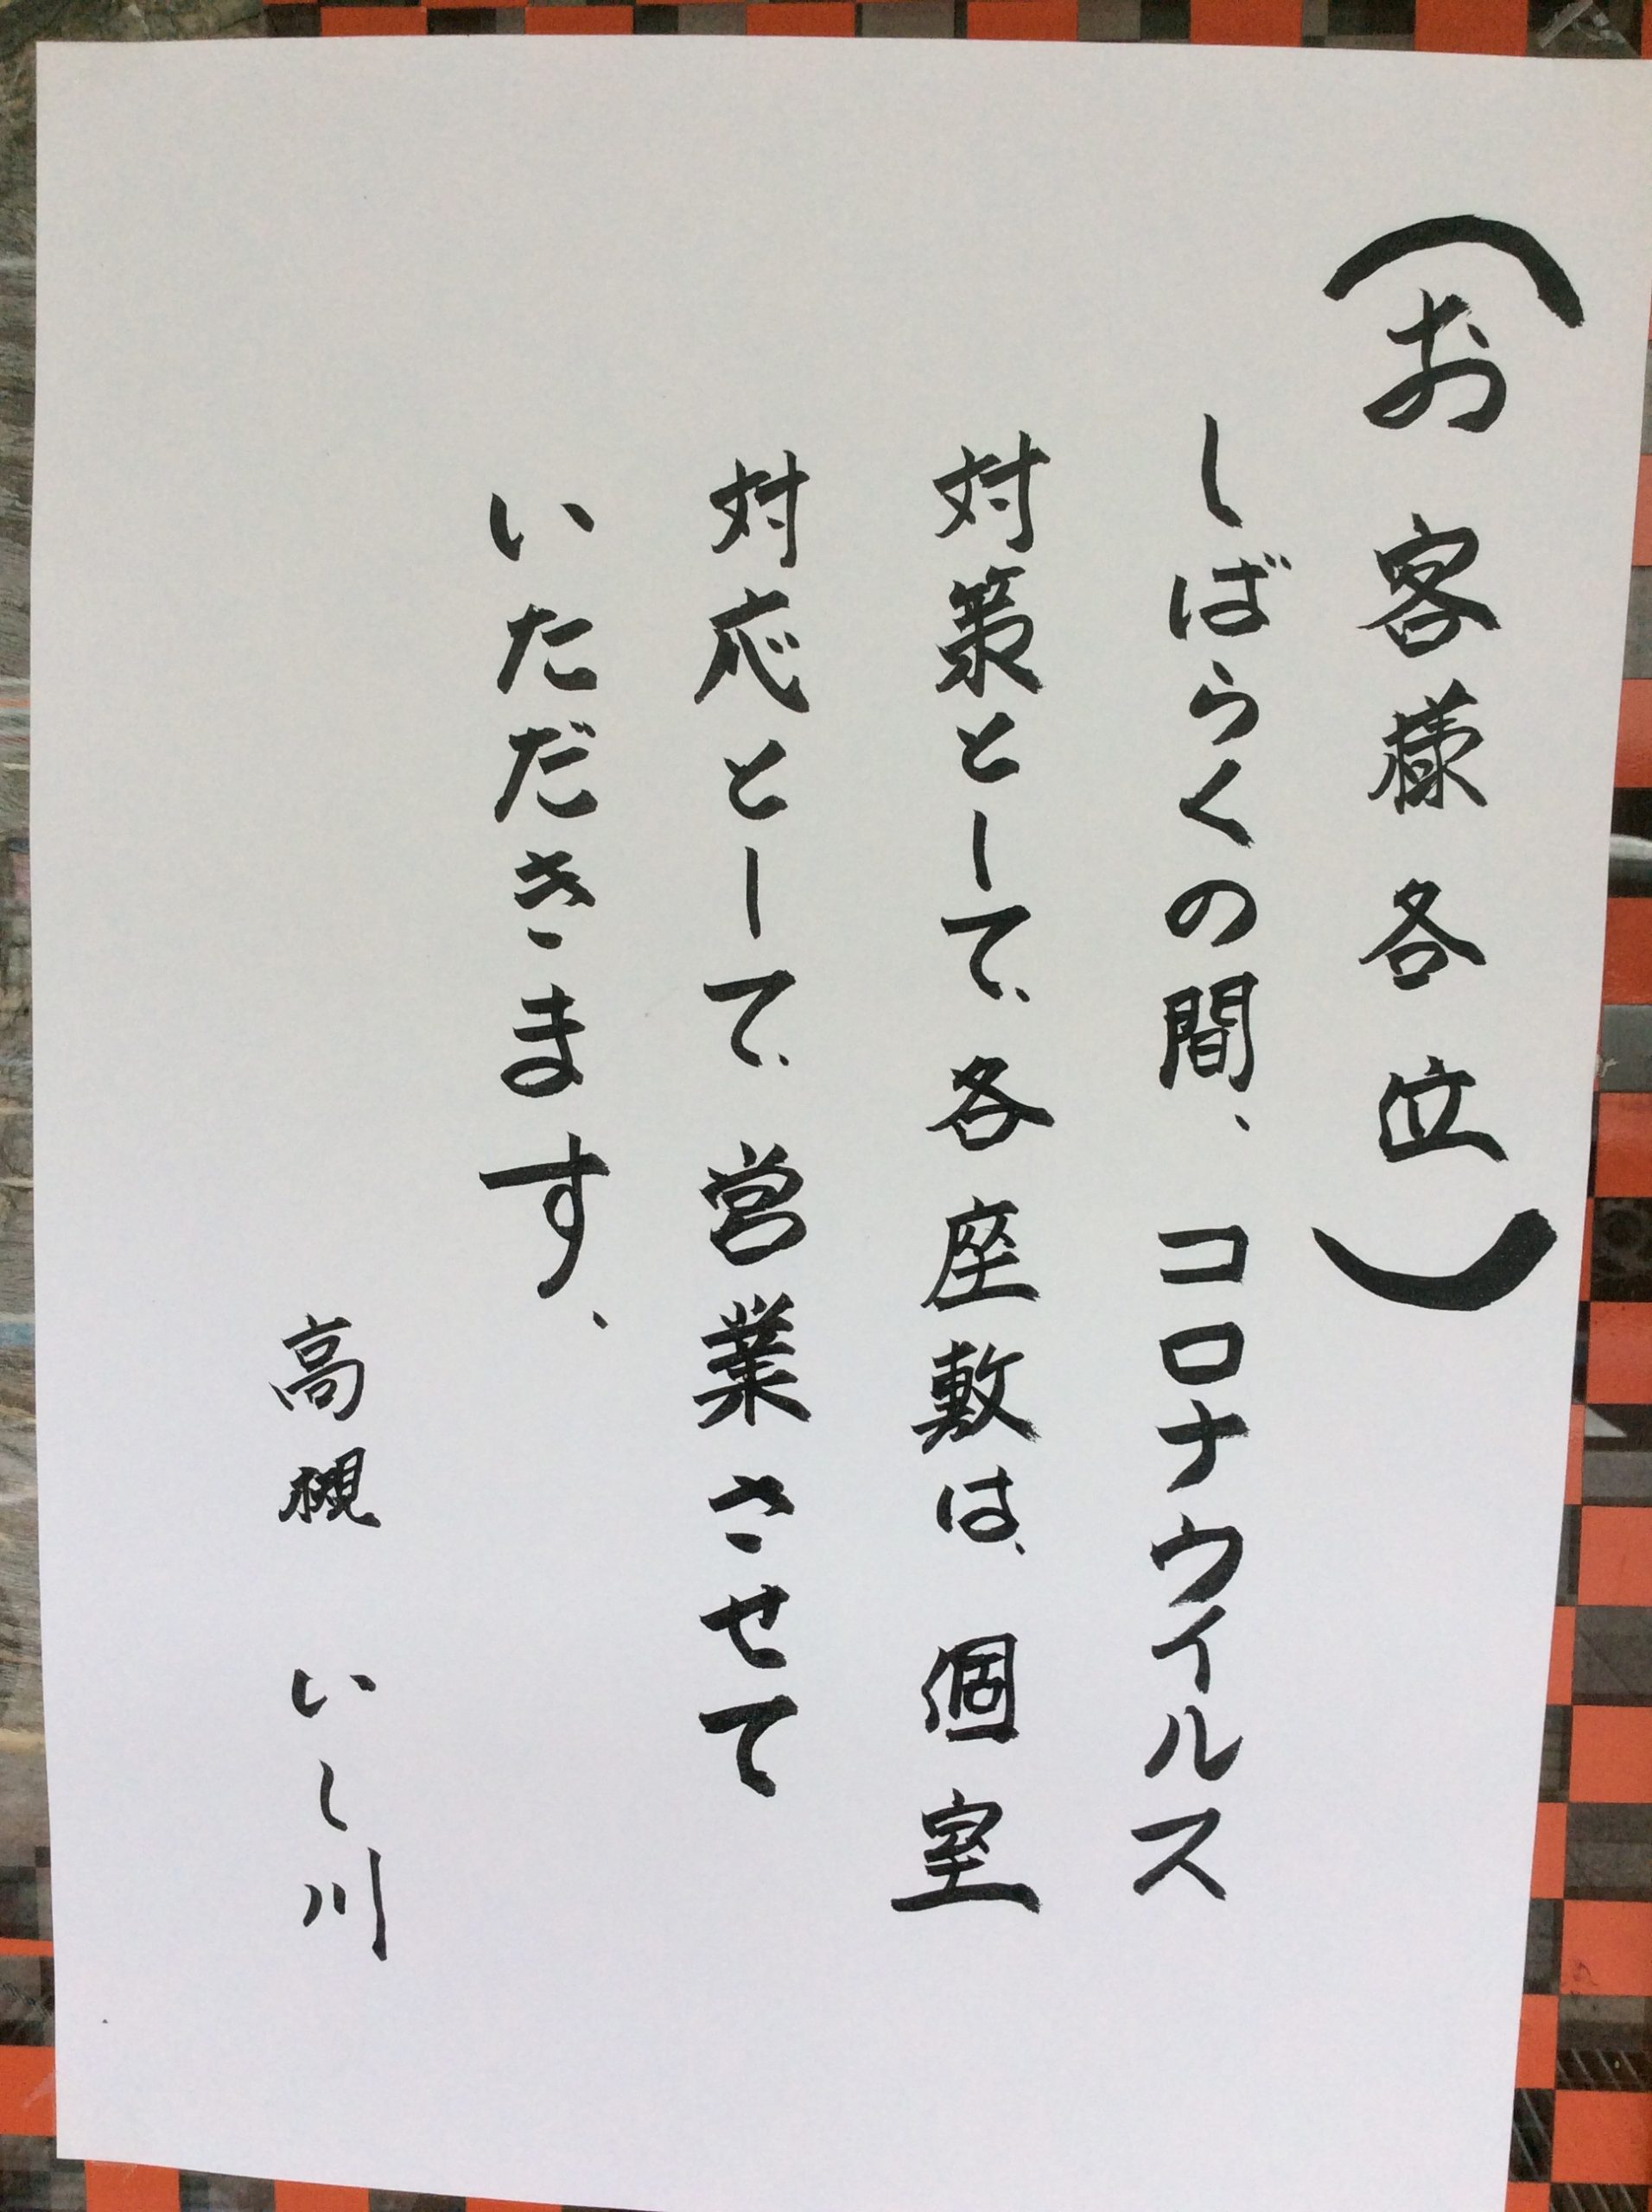 （お客様各位）
しばらくの間、コロナウイルス
対策として、各座敷は、個室
対応として、営業させて
いただきます、
高槻 いし川